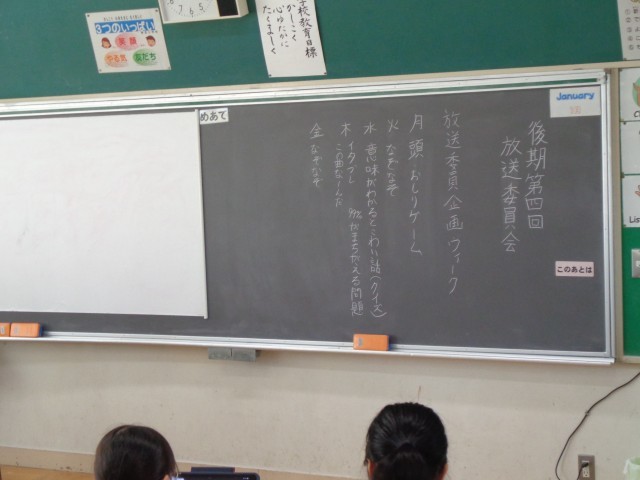 後期第四回
放送委員会
放送委員企画ウィーク
月 頭おしりゲーム
火 なぞなぞ
水 意味がわかるとこわい話(クイズ)
木 イタズレ
この曲なーんだ
99%がまちがえる問題
金 なぞなぞ
January
このあとは
めあて
学校教育目標
かしこく
心ゆたかに
たくましく
3つのいっぱい
笑顔
やる気
友だち